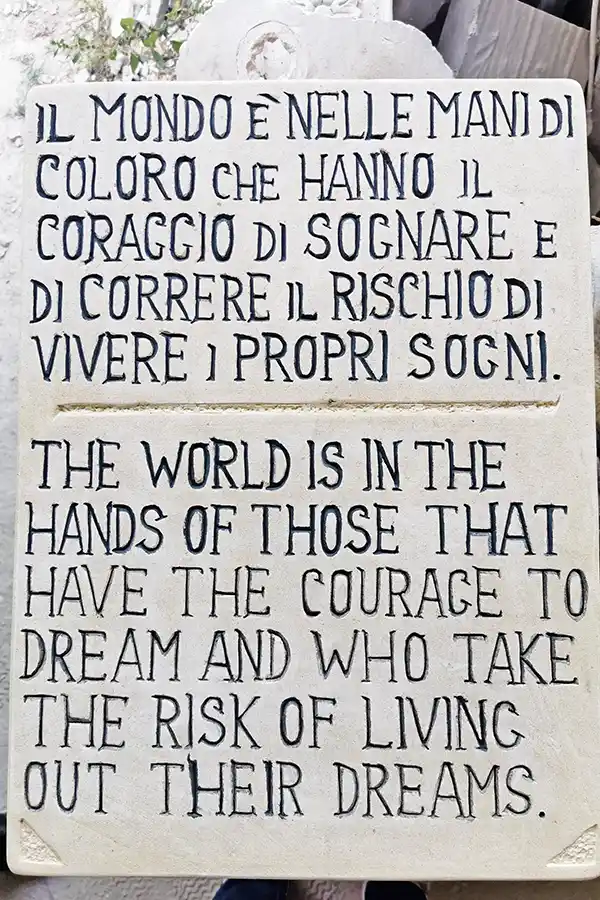 IL MONDO È NELLE MANI DI
COLORO CHE HANNO IL
CORAGGIO DI SOGNARE E
DI CORRERE IL RISCHIO DI
VIVERE I PROPRI SOGNI.
THE WORLD IS IN THE
HANDS OF THOSE THAT
HAVE THE COURAGE TO
DREAM AND WHO TAKE
THE RISK OF LIVING
OUT THEIR DREAMS.